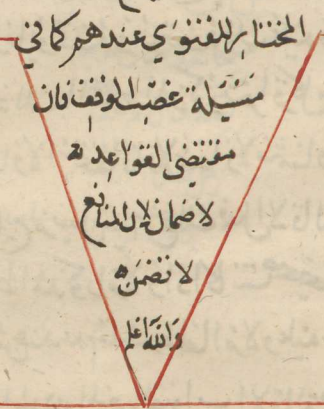 المختار للفتوى عندهم كما في
مسئلة غصب الوقف فان
مقتضى القواعد انه
لا ضمان لان المنافع
لا تضمن
والله اعلم